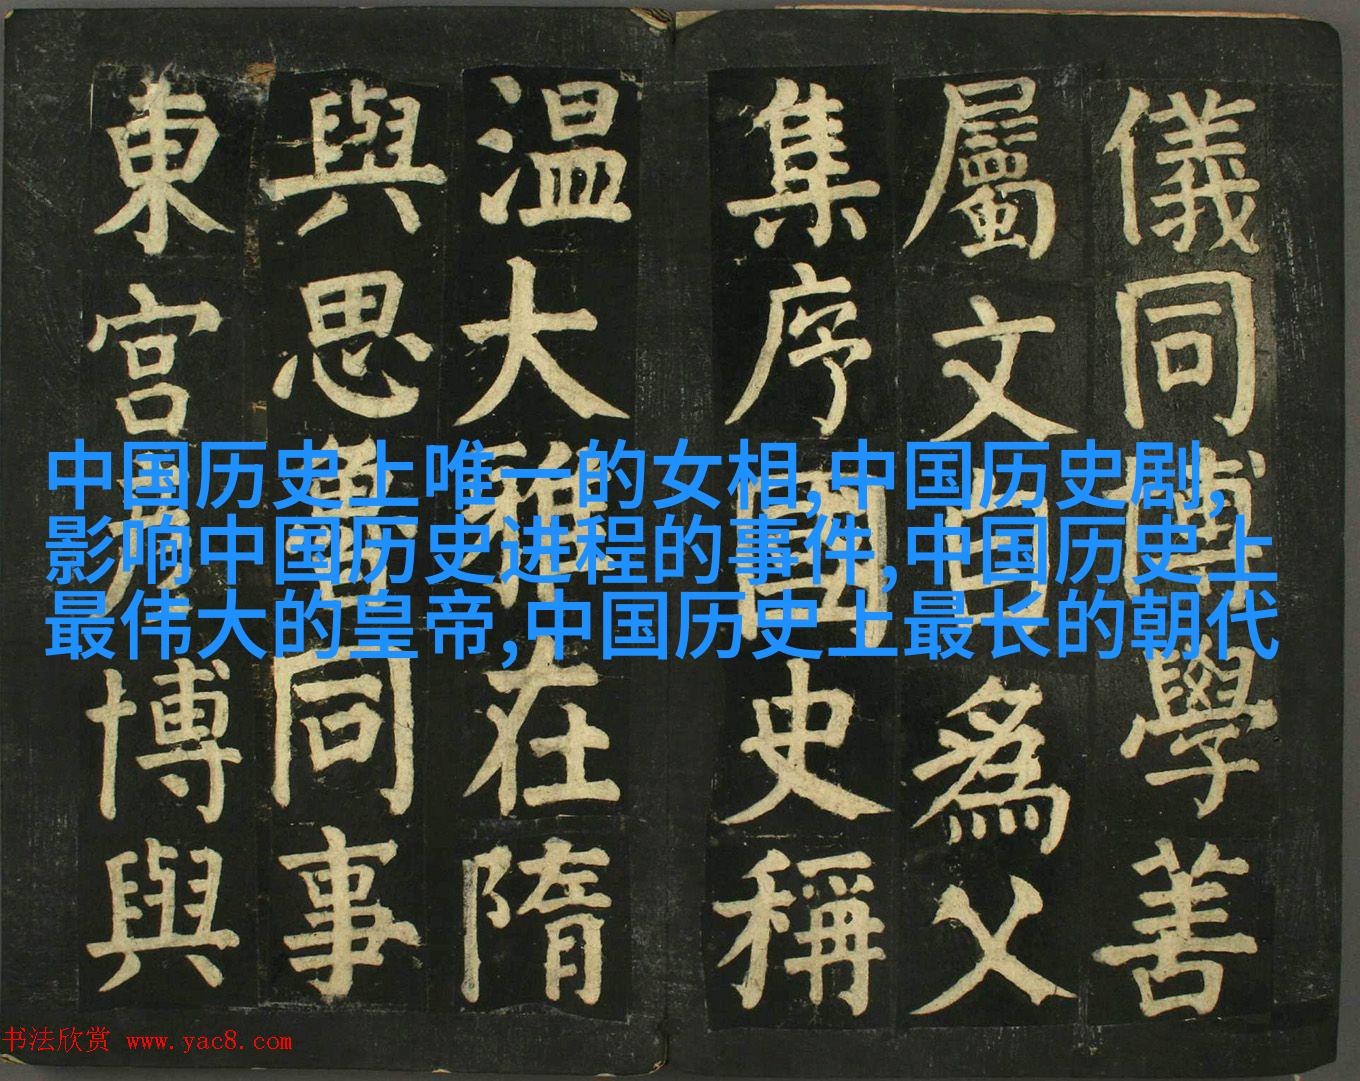 儀同博學善
屬文自為父
集序國史稱
温大雅在隋
與思魯同事
東宮彦博與
中国历史上唯一的女相,中国历史剧,
影响中国历史进程的事件,中国历史上
最伟大的皇帝,中国历史上最长的朝代
书法欣赏 www.yac8.com